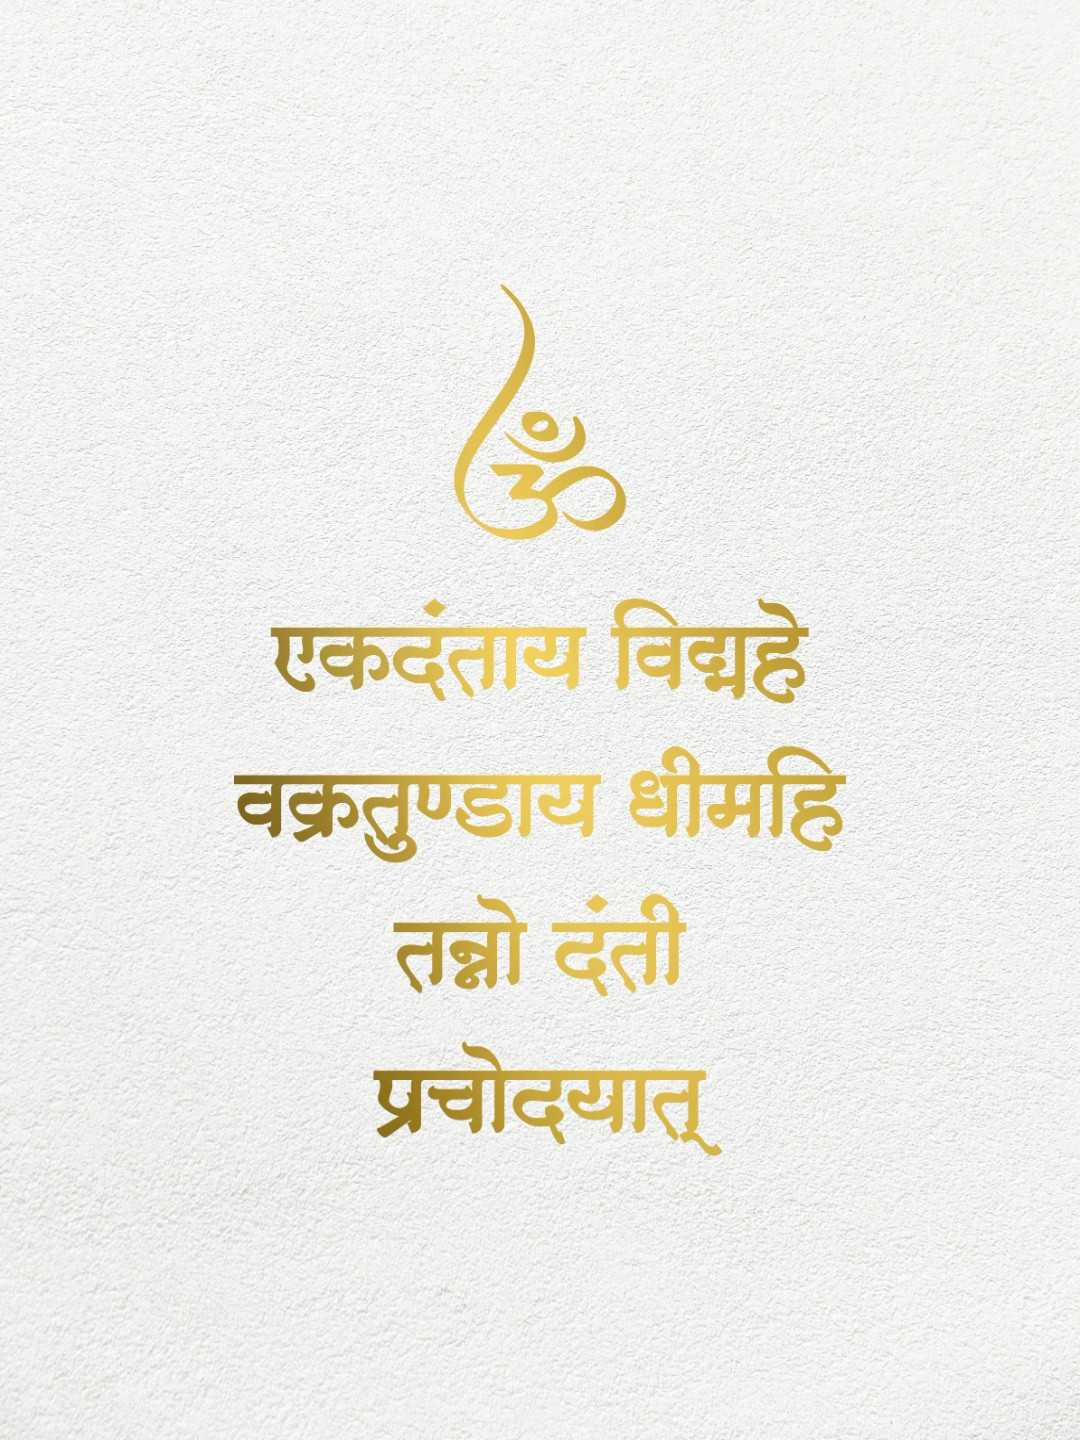 ॐ
एकदंताय विद्महे
वक्रतुण्डाय धीमहि
तन्नो दंती
प्रचोदयात्